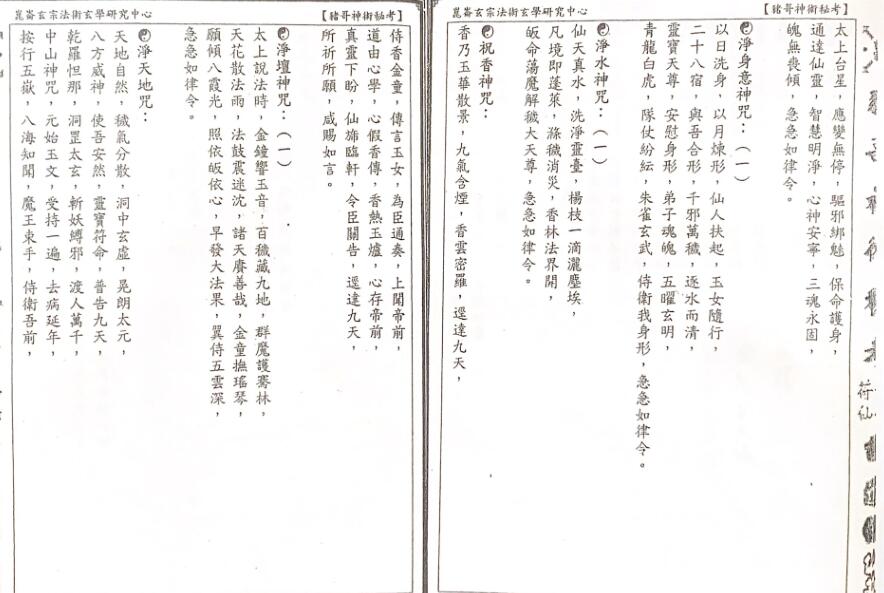 崑崙玄宗法術玄學研究中心
【豬哥神術秘考】
太上台星，應變無停，驅邪綁魅，保命護身，
通達仙靈，智慧明淨，心神安寧，三魂永固，
魄無喪傾，急急如律令。
淨身意神咒：（一）
以日洗身，以月煉形，仙人扶起，玉女隨行，
二十八宿，與吾合形，千邪萬穢，逐水而清，
靈寶天尊，安慰身形，弟子魂魄，五曜玄明，
青龍白虎，隊仗紛紜，朱雀玄武，侍衛我身形，急急如律令。
淨水神咒：（一）
仙天真水，洗淨靈臺，楊枝一滴灑塵埃，
凡境即蓬萊，滌穢消災，香林法界開，
皈命蕩魔解穢大天尊，急急如律令。
祝香神咒：
香乃玉華散景，九氣含煙，香雲密羅，逕達九天，
符仙
崑崙玄宗法術玄學研究中心
【豬哥神術秘考】
侍香金童，傳言玉女，為臣通奏，上聞帝前，
道由心學，心假香傳，香熱玉爐，心存帝前，
真靈下盼，仙旆臨軒，令臣關告，逕達九天，
所祈所願，咸賜如言。
淨壇神咒：（一）
太上說法時，金鐘響玉音，百穢藏九地，群魔護騫林，
天花散法雨，法鼓震迷沈，諸天賡善哉，金童撫瑤琴，
願傾八霞光，照依皈依心，早發大法果，翼侍五雲深，
急急如律令。
淨天地咒：
天地自然，穢氣分散，洞中玄虛，晃朗太元，
八方威神，使吾安然，靈寶符命，普告九天，
乾羅怛那，洞罡太玄，斬妖縛邪，渡人萬千，
中山神咒，元始玉文，受持一遍，去病延年，
按行五嶽，八海知聞，魔王束手，侍衛吾前，